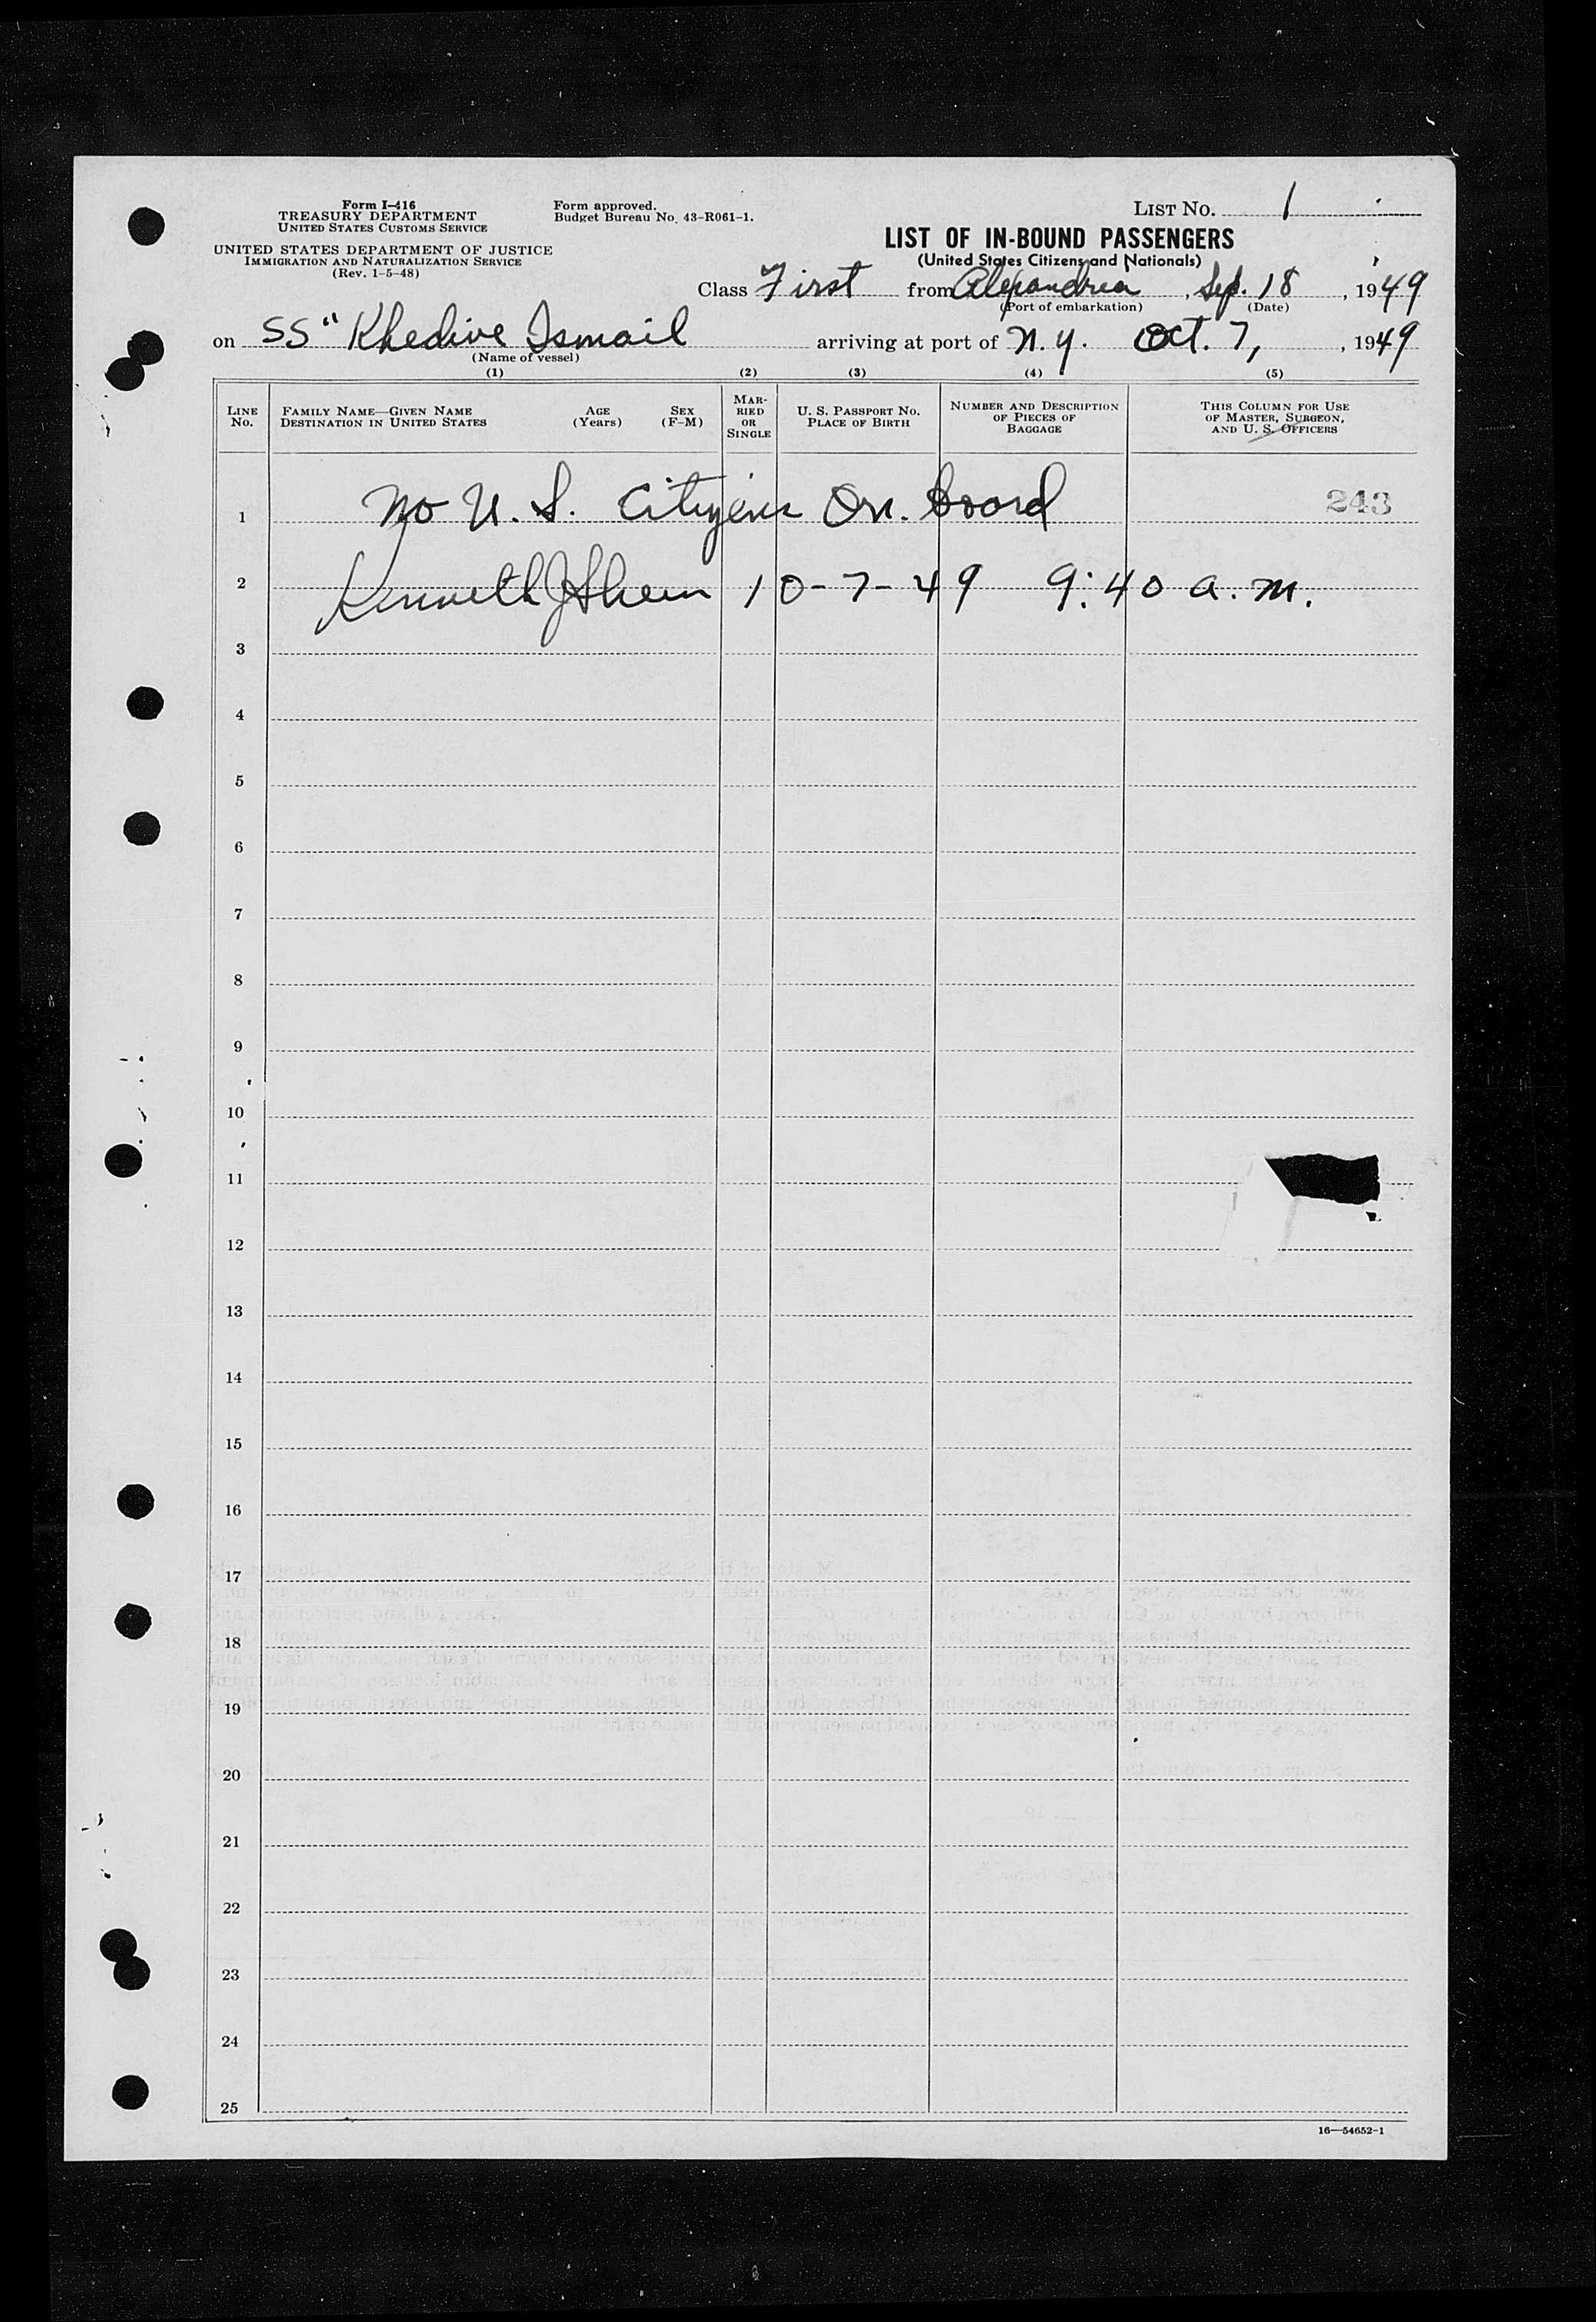 Form I-416
TREASURY DEPARTMENT
UNITED STATES CUSTOMS SERVICE
UNITED STATES DEPARTMENT OF JUSTICE
IMMIGRATION AND NATURALIZATION SERVICE
(Rev. 1-5-48)
Form approved.
Budget Bureau No. 43-R061-1.
LIST NO. 1
LIST OF IN-BOUND PASSENGERS
(United States Citizens and Nationals)
Class First from Alexandria, Sep. 18, 1949
(Port of embarkation) (Date)
on SS "Khedive Ismail arriving at port of N.Y. Oct. 7, , 1949
(Name of vessel)
(1) (2) (3) (4) (5)
LINE No.
FAMILY NAME—GIVEN NAME
DESTINATION IN UNITED STATES
AGE (Years)
SEX (F-M)
MARRIED OR SINGLE
U. S. PASSPORT NO.
PLACE OF BIRTH
NUMBER AND DESCRIPTION
OF PIECES OF
BAGGAGE
THIS COLUMN FOR USE
OF MASTER, SURGEON,
AND U. S. OFFICERS
1 No U. S. Citizens On. board 243
2 Kenneth J 10-7-49 9:40 a.m.
3
4
5
6
7
8
9
10
11
12
13
14
15
16
17
18
19
20
21
22
23
24
25
16—54652-1